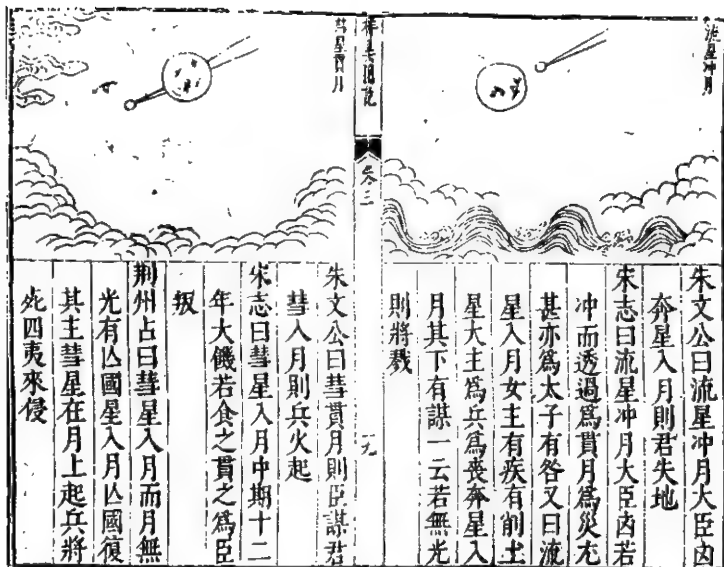 流星冲月
朱文公曰流星冲月大臣凶
奔星入月則君失地
宋志曰流星冲月大臣凶若
冲而透過為貫月為災尤
甚亦為太子有咎又曰流
星入月女主有疾有削土
星大主為兵為喪奔星入
月其下有謀一云若無光
則將戮
卷二
十九
彗星貫月
朱文公曰彗貫月則臣謀君
彗入月則兵火起
宋志曰彗星入月中期十二
年大饑若食之貫之為臣
叛
荆州占曰彗星入月而月無
光有亾國星入月亾國復
其主彗星在月上起兵將
死四夷來侵